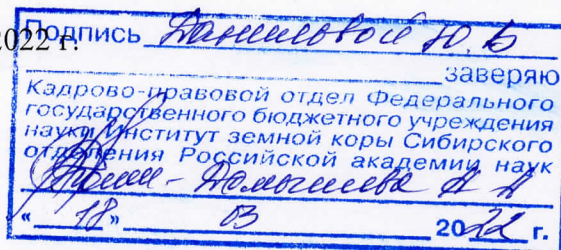 2022 г.
Подпись Данильвой Ю. Б
заверяю
Кадрово-правовой отдел Федерального
государственного бюджетного учреждения
науки Институт земной коры Сибирского
отделения Российской академии наук
« 18 » 03 2022 г.